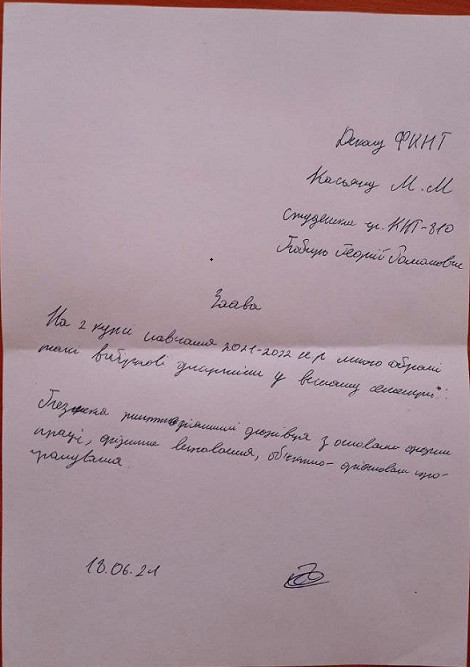 Декану ФКНТ
Касьяну М.М
студента гр. КНТ-810
Георгій Романович
Заява
На 2 курс навчання 2021-2022 н.р мною обрані
такі вибіркові дисципліни у весняному семестрі:
Безпека життєдіяльності фахівця з основами охорони
праці, фізичне виховання, об'єктно-орієнтоване про-
грамування
18.06.21